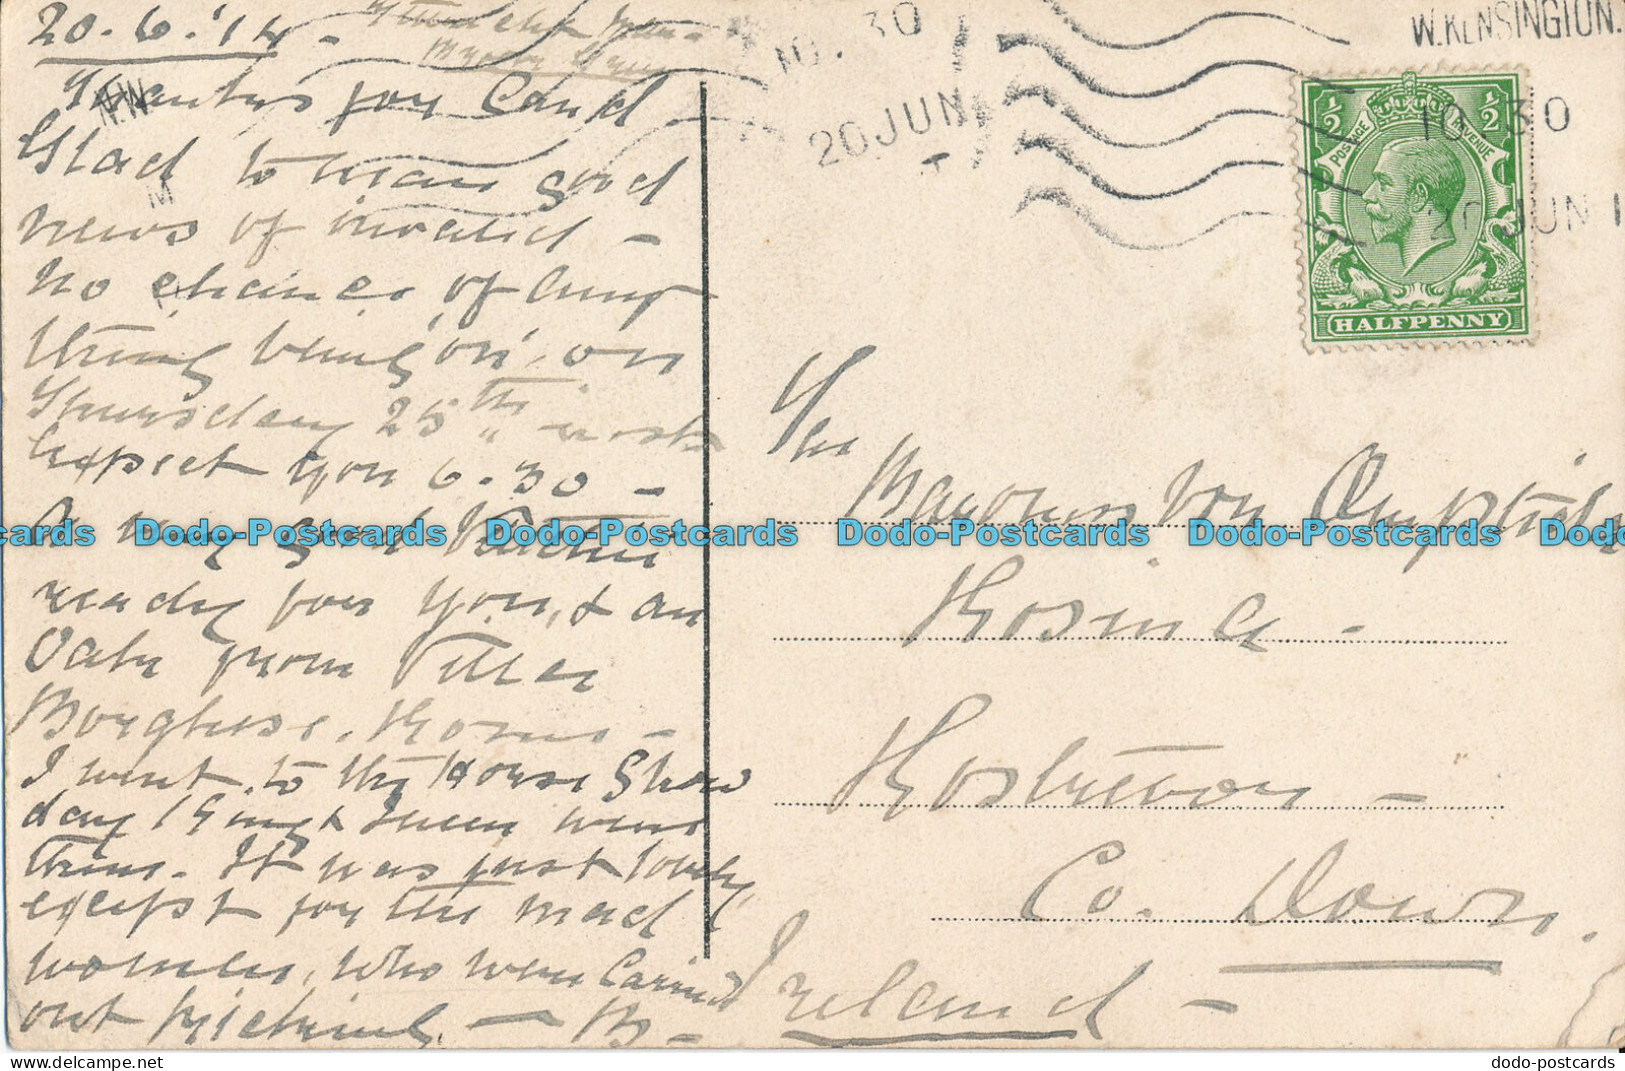 20.6.'14 -
Thanks for Card
Glad to hear good
news of invalid -
No chance of any
thing being 'on' on
Thursday 25th inst
Expect you 6.30 -
A very good
ready for you, & an
from Villa
Borghese, Rome -
I went to the Horse Show
day King & Queen were
there. It was just lovely,
except for the mad
women, who were carried
out kicking. - B -
10.30
20 JUN
W.KENSINGTON.
10 30
20 JUN 1
½ ½
POSTAGE REVENUE
HALFPENNY
The
Baroness Von
Rosina -
Rostrevor -
Co. Down.
Ireland -
Dodo-Postcards Dodo-Postcards Dodo-Postcards Dodo-Postcards
dodo-postcards